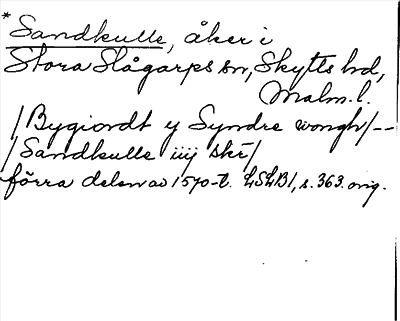 * Sandkulle, åker i
Stora Slågarps sn, Skytts hd,
Malm. l.
/Bygiordt y Syndre wongh/--
/Sandkulle iiij skr/
förra delen av 1570-t. LSLB1, s. 363. orig.